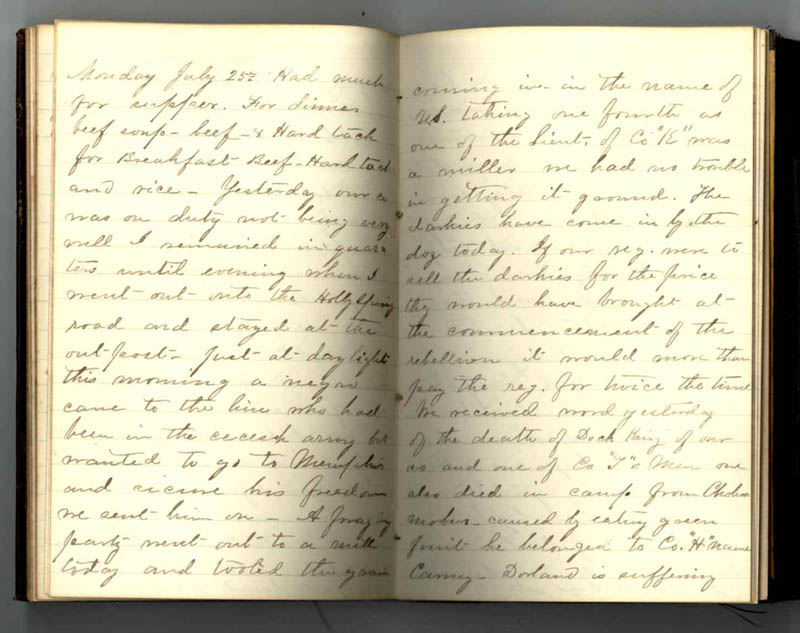 Monday July 25th Had mush
for supper. For dinner
beef soup - beef - & Hard tack
for Breakfast Beef - Hard tack
and rice - Yesterday our co
was on duty not being very
well I remained in quar-
ters until evening when I
went out onto the Holly Spring
road and stayed at the
out post - just at day light
this morning a negro
came to the line who had
been in the cecesh army but
wanted to go to Memphis
and sicure his freedom
we sent him on - A foraging
party went out to a mill
today and tooted the grain
coming in - in the name of
U.S. taking one fourth as
one of the Lieut. of Co "K" was
a miller we had no trouble
in getting it ground. The
darkies have come in by the
doz today. If our reg. were to
sell the darkies for the price
they would have brought at
the commencement of the
rebellion it would more than
pay the reg. for twice the time
We received word yesterday
of the death of Dock King of our
co and one of Co "I"s Men one
also died in camp from Cholera
mobus - caused by eating green
fruit he belonged to Co. "H" name
Carny - Dorland is suffering